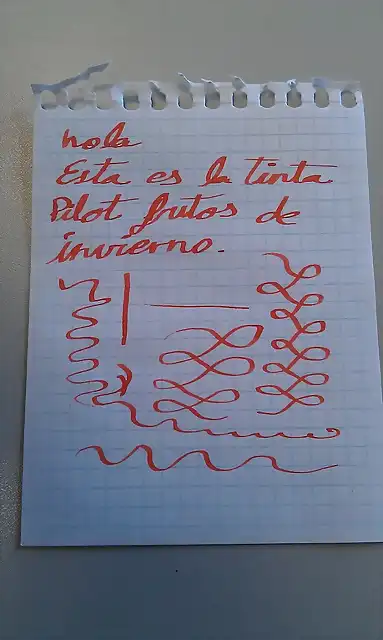 hola
Esta es la tinta
Pilot frutos de
invierno.